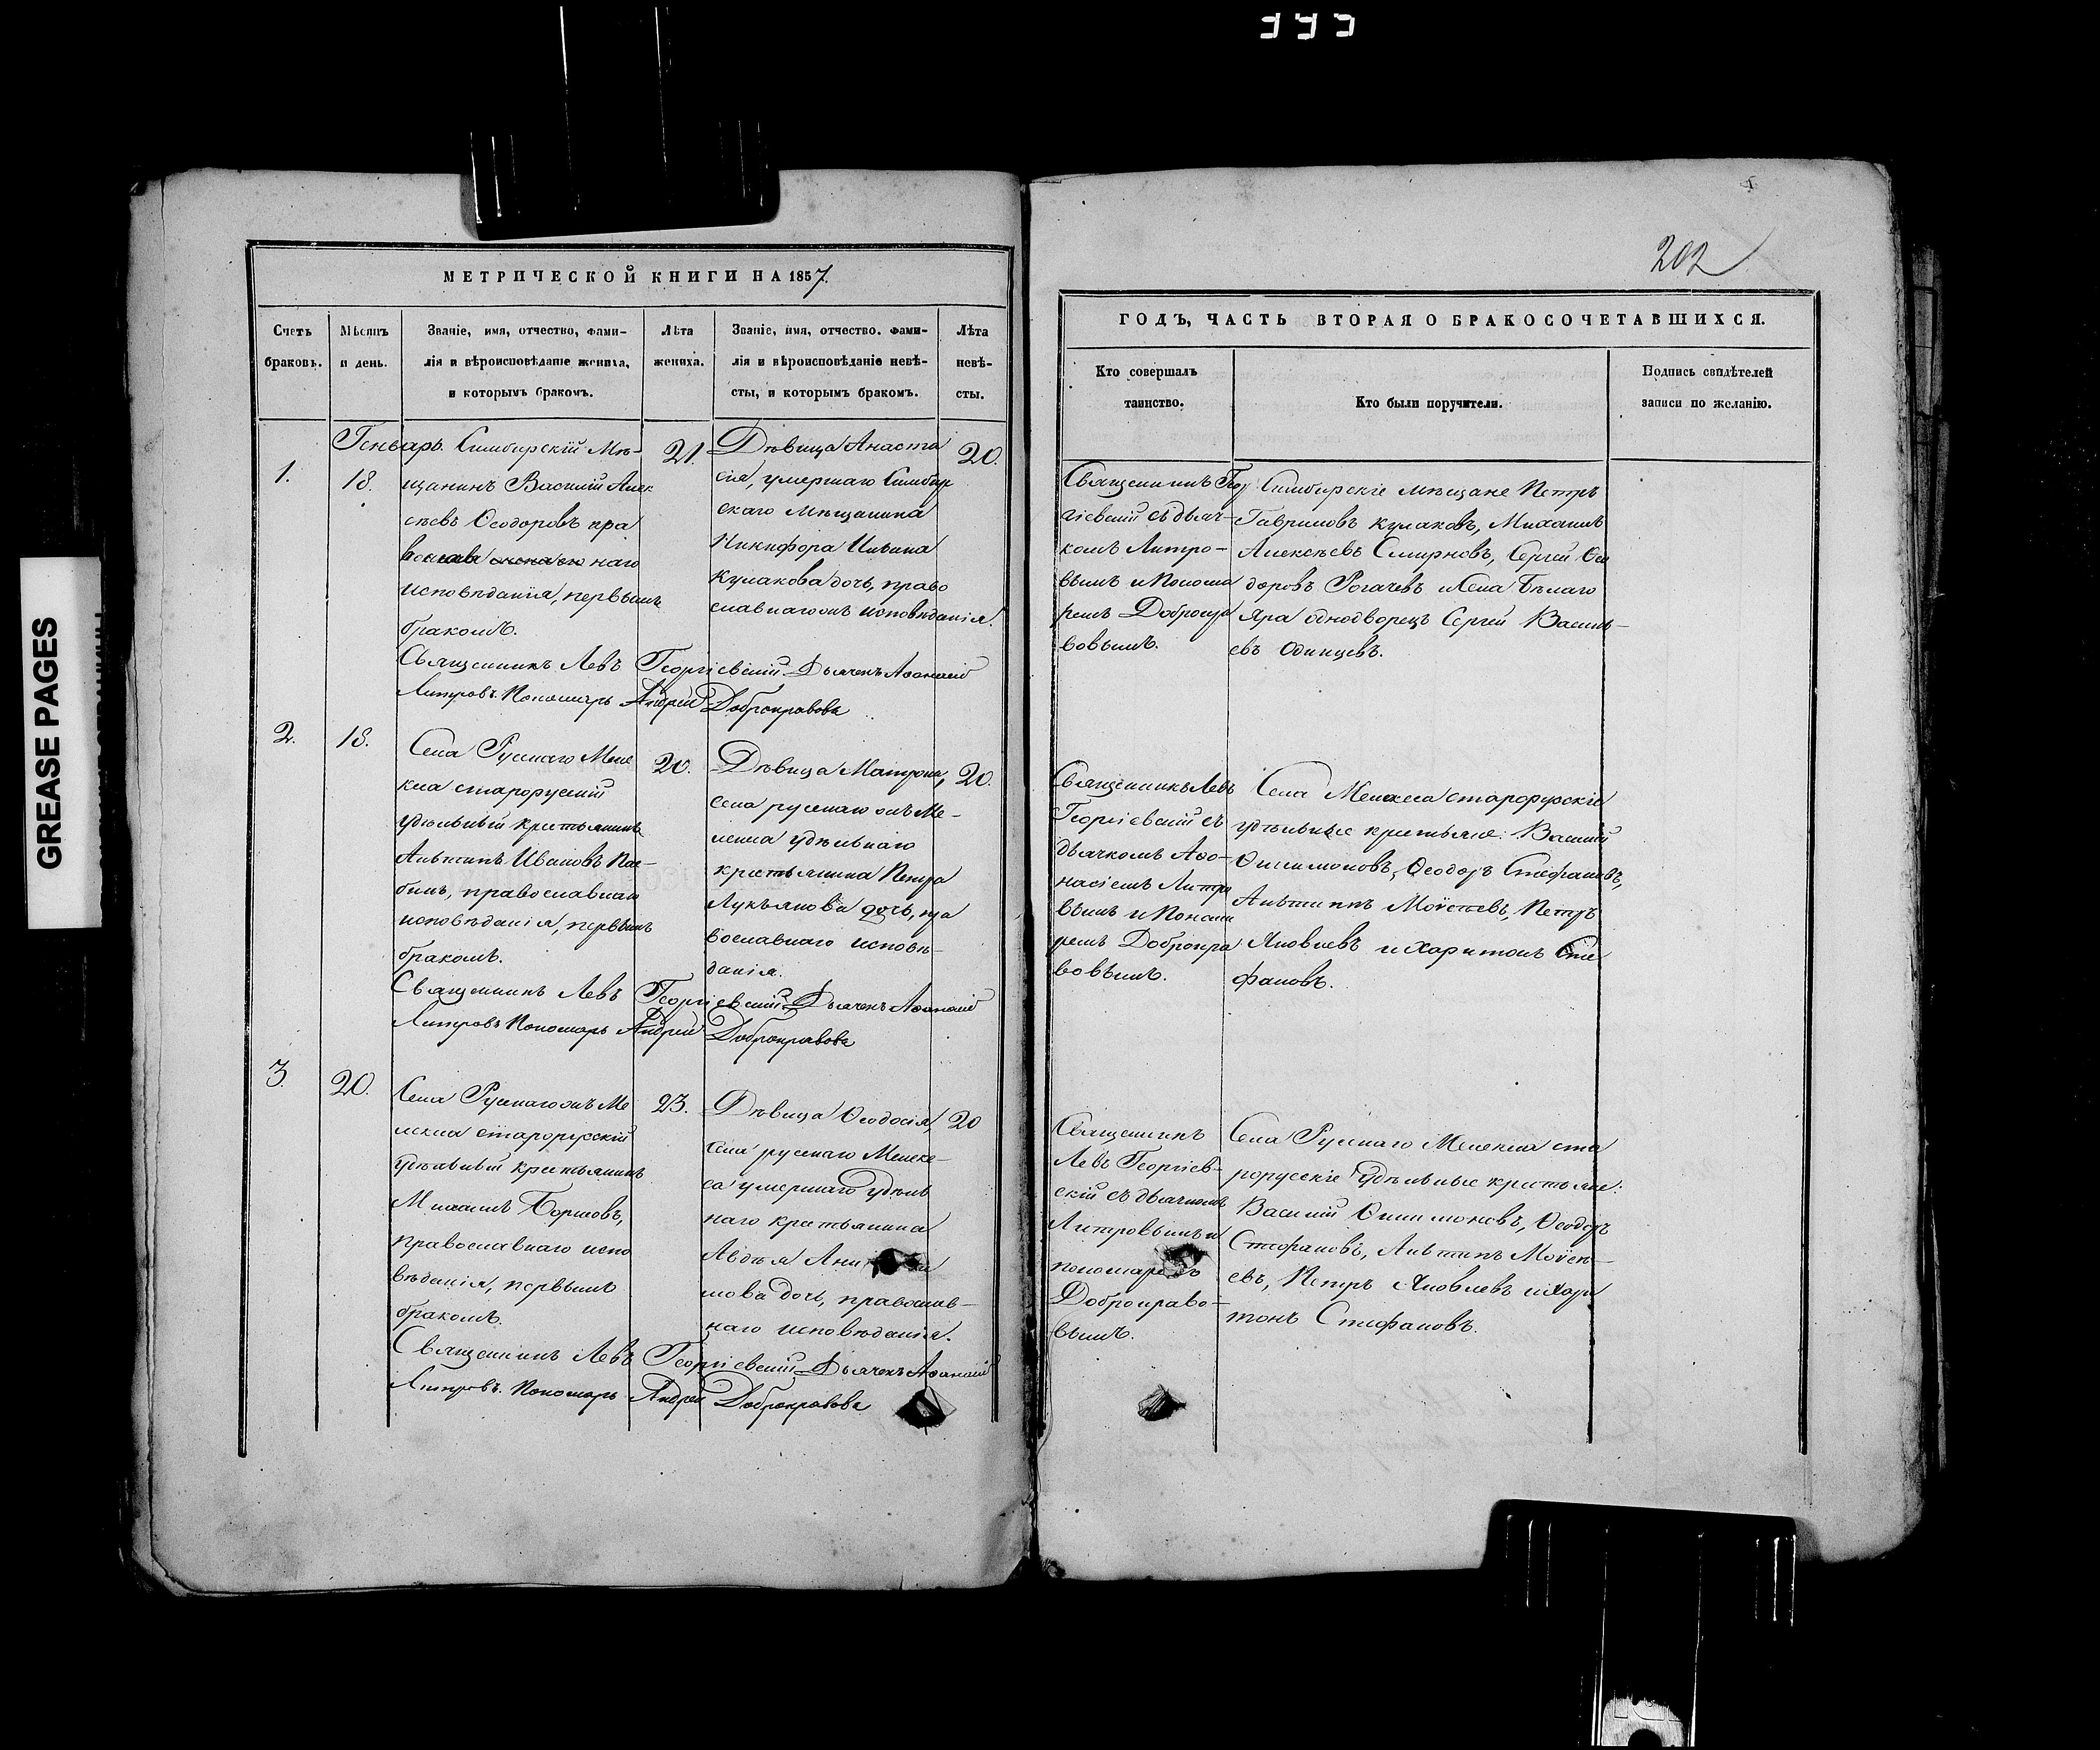 GREASE PAGES
202
МЕТРИЧЕСКОЙ КНИГИ НА 1857.
Счетъ браковъ.
Мѣсяцъ и день.
Званіе, имя, отчество, фами-
лія и вѣроисповѣданіе жениха,
и которымъ бракомъ.
Лѣта жениха.
Званіе, имя, отчество. фами-
лія и вѣроисповѣданіе невѣ-
сты, и которымъ бракомъ.
Лѣта невѣ-
сты.
1.
Генварь.
18.
Симбирскій Мѣ-
щанинъ Василій Алек
сѣевъ Ѳеодоровъ пра
наго
исповѣданія, первымъ
бракомъ.
21.
Дѣвица Анаста
сія, умершаго Симбир
скаго мѣщанина
Никифора Ильина
Кулакова дочь, право
славнаго исповѣданія.
20.
Священникъ Левъ Георгіевскій Дьячекъ Аѳанасій
Пономарь Андрей Добронравовъ
2.
18.
Села Русскаго Меле
кеса старорусскій
удѣльный крестьянинъ
Ивановъ
православнаго
исповѣданія, первымъ
бракомъ.
20.
Дѣвица Матрона,
села русскаго Ме-
удѣльнаго
крестьянина Петра
Лукьянова дочь, пра
вославнаго исповѣ-
данія.
20.
Священникъ Левъ Георгіевскій Дьячекъ Аѳанасій
Пономарь Андрей Добронравовъ
3.
20.
Села Русскаго Ме
старорусскій
удѣльный крестьянинъ
Михаилъ
православнаго испо
вѣданія, первымъ
бракомъ.
23.
Дѣвица Ѳеодосія,
села русскаго Мелеке-
са умершаго удѣль
наго крестьянина
Авдѣя
мова дочь, православ-
наго исповѣданія.
20
Священникъ Левъ Георгіевскій Дьячекъ Аѳанасій
Пономарь Андрей Добронравовъ
ГОДЪ, ЧАСТЬ ВТОРАЯ О БРАКОСОЧЕТАВШИХСЯ.
Кто совершалъ
таинство.
Кто были поручители.
Подпись свидѣтелей
записи по желанію.
Священникъ Геор
гіевскій съ дьяч-
комъ
вымъ и Понома
ремъ Добронра
вовымъ.
Симбирскіе мѣщане Петръ
Гавриловъ Кулаковъ, Михаилъ
Алексѣевъ Смирновъ, Сергѣй Ѳео
доровъ Рогачевъ и Села Бѣлаго
Яра однодворецъ Сергѣй Василь-
евъ Одинцевъ.
Священникъ Левъ
Георгіевскій съ
дьячкомъ Аѳа-
насіемъ
вымъ и Понома
ремъ Добронра
вовымъ.
Села Мелекеса старорусскіе
удѣльные крестьяне: Василій
Ѳеодоръ Стефановъ,
Петръ
Яковлевъ и Харитонъ Сте
фановъ.
Священникъ
Левъ Георгіев-
скій съ дьячкомъ
пономаремъ
Добронраво-
вымъ.
Села Русскаго Мелекеса ста
рорусскіе удѣльные крестьяне:
Василій Ѳеодоръ
Стефановъ,
евъ, Петръ Яковлевъ и Хари
тонъ Стефановъ.